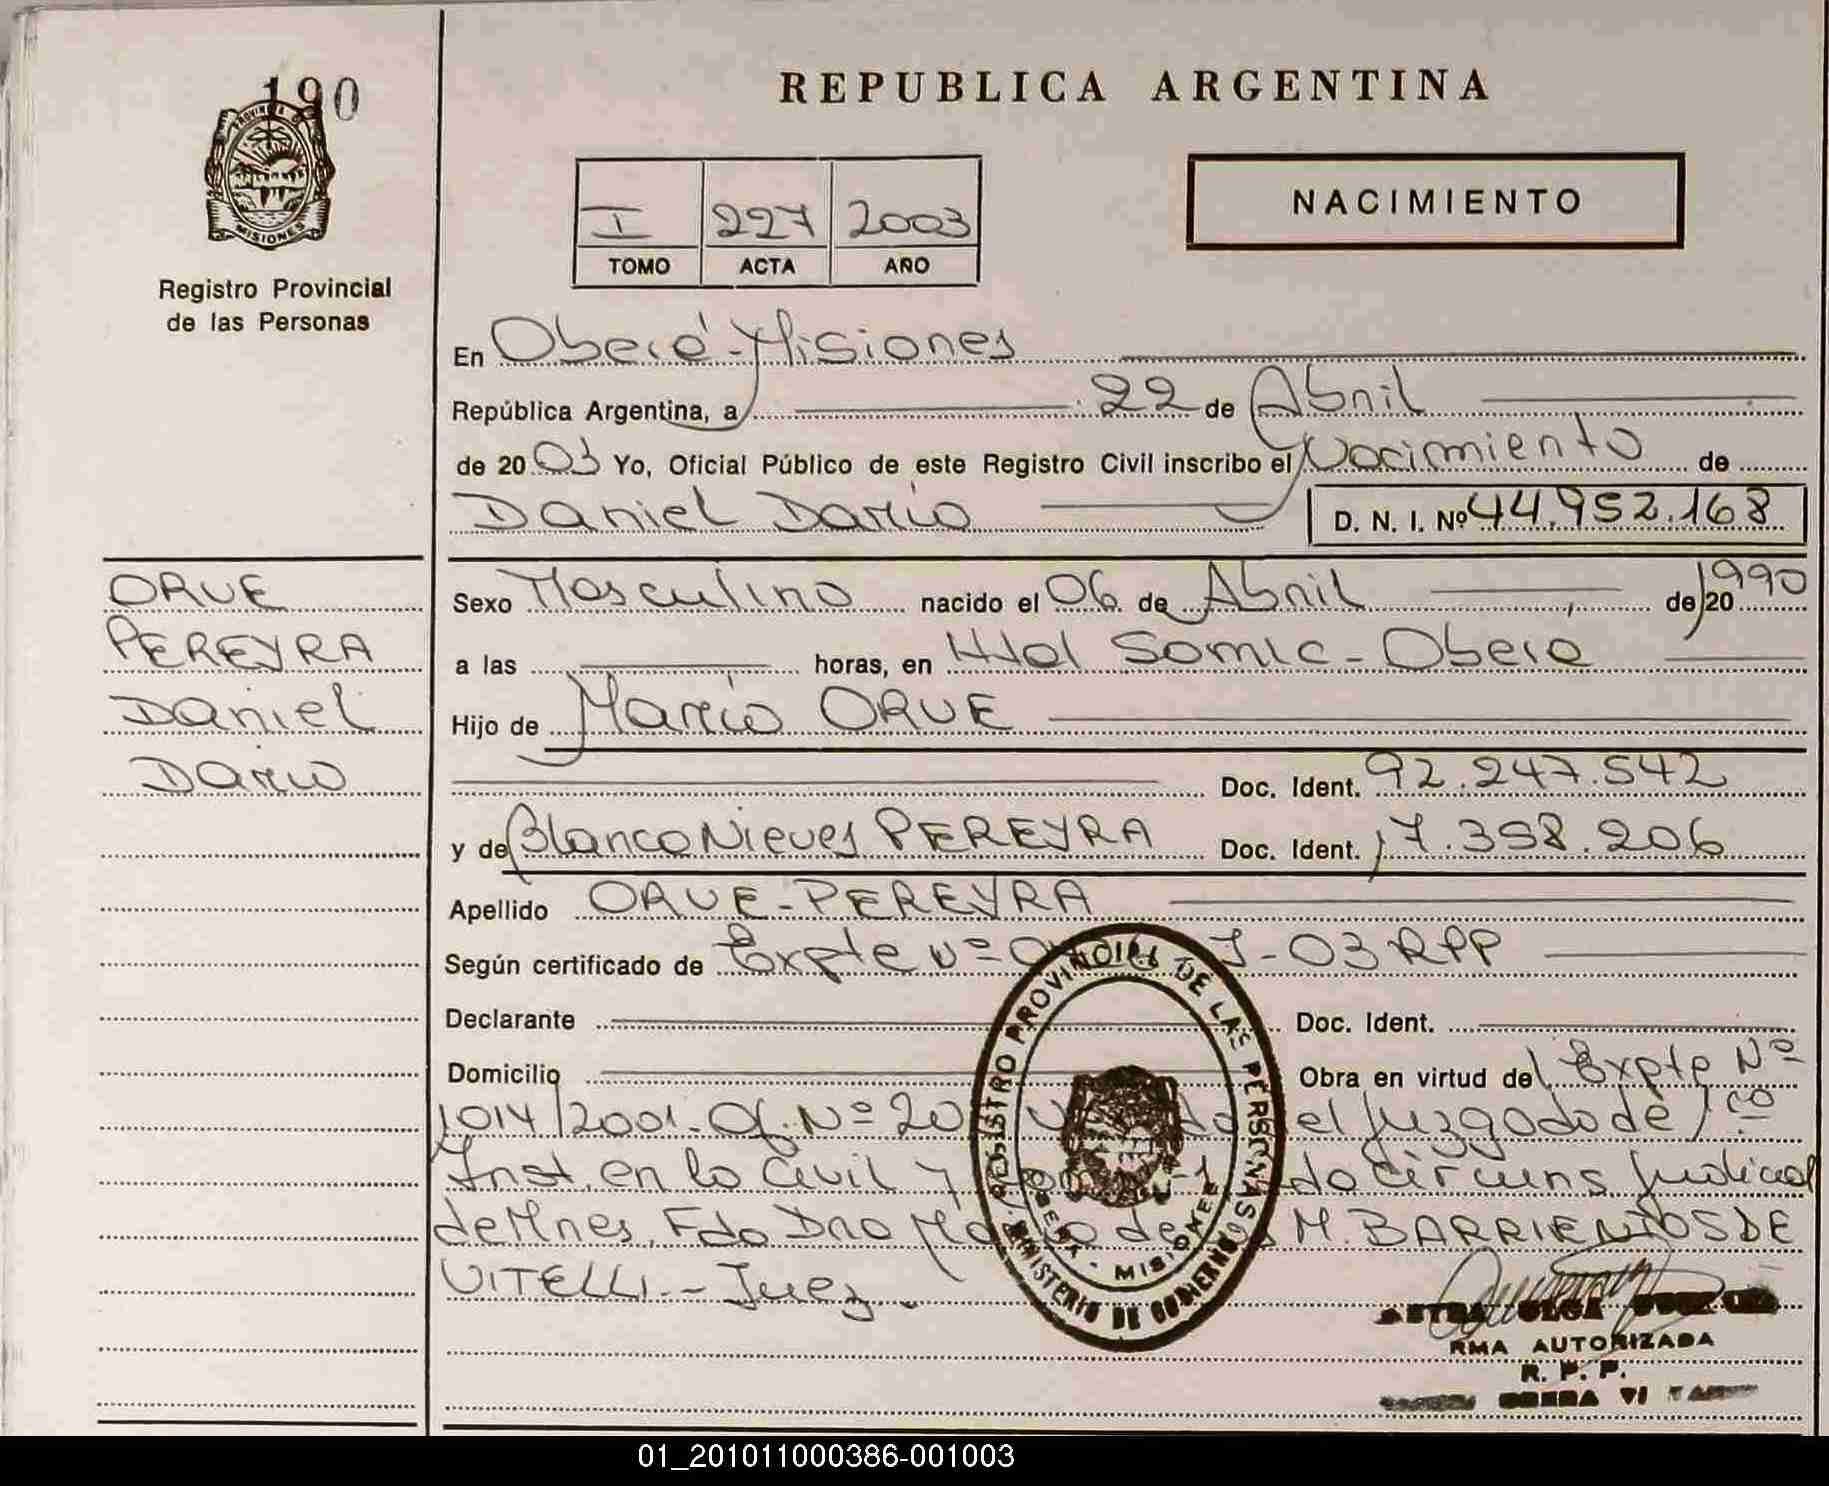 190
PROVINCIA D
MISIONES
Registro Provincial
de las Personas
REPUBLICA ARGENTINA
I 227 2003
TOMO ACTA AÑO
NACIMIENTO
En Oberá-Misiones
República Argentina, a 22 de Abril
de 20 03 Yo, Oficial Público de este Registro Civil inscribo el Nacimiento de
Daniel Dario D. N. I. Nº 44.952.168
ORUE
PEREYRA
Daniel
Dario
Sexo Masculino nacido el 06 de Abril de 20 1990
a las horas, en Htal Somic-Oberá
Hijo de Mario ORUE
Doc. Ident. 92.247.542
y de Blanca Nieves PEREYRA Doc. Ident. 17.358.206
Apellido ORUE-PEREYRA
Según certificado de Expte Nº J-03 RPP
Declarante Doc. Ident.
Domicilio Obra en virtud del Expte Nº
1014/2001. Of. Nº 20 el Juzgado de 1ra
Inst. en lo Civil y da circuns Judicial
de Mnes. Fdo Dra de M. BARRIENTOS DE
VITELLI.- Juez.
REGISTRO PROVINCIAL DE LAS PERSONAS
MINISTERIO DE GOBIERNO
OBERA - MISIONES
OLGA
RMA AUTORIZADA
R. P. P.
OBERA
01_201011000386-001003